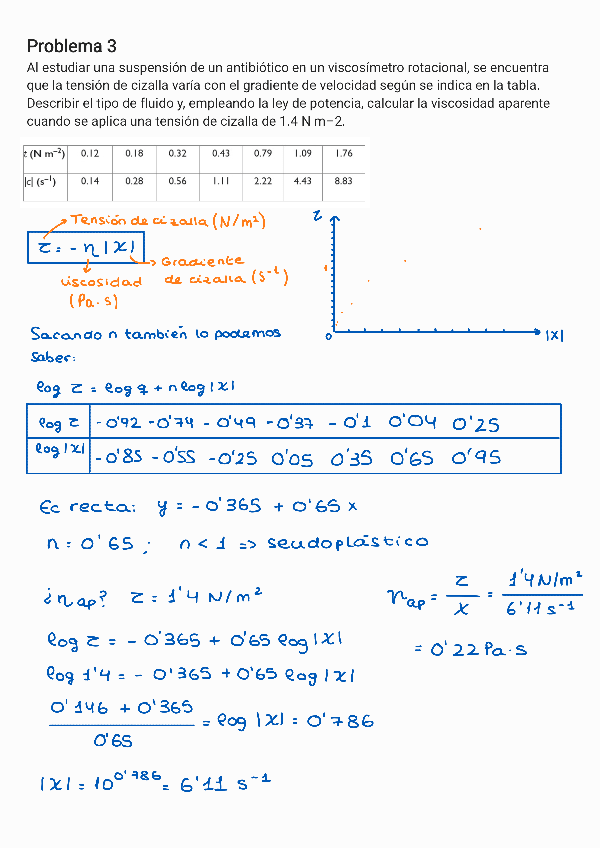 Problema 3
Al estudiar una suspensión de un antibiótico en un viscosímetro rotacional, se encuentra
que la tensión de cizalla varía con el gradiente de velocidad según se indica en la tabla.
Describir el tipo de fluido y, empleando la ley de potencia, calcular la viscosidad aparente
cuando se aplica una tensión de cizalla de 1.4 N m−2.
t (N m⁻²) 0.12 0.18 0.32 0.43 0.79 1.09 1.76
|c| (s⁻¹) 0.14 0.28 0.56 1.11 2.22 4.43 8.83
Tensión de cizalla (N/m²)
τ = - η |ɣ|
Gradiente
de cizalla (s⁻¹)
viscosidad
(Pa·s)
τ
1
0
|ɣ|
Sacando n también lo podemos
saber:
log τ = log η + n log |ɣ|
log τ -0'92 -0'74 -0'49 -0'37 -0'1 0'04 0'25
log |ɣ| -0'85 -0'55 -0'25 0'05 0'35 0'65 0'95
Ec recta: y = -0'365 + 0'65 x
n = 0'65 ; n < 1 => seudoplástico
¿ηap? τ = 1'4 N/m²
log τ = - 0'365 + 0'65 log |ɣ|
log 1'4 = - 0'365 + 0'65 log |ɣ|
0'146 + 0'365 / 0'65 = log |ɣ| = 0'786
|ɣ| = 10^0'786 = 6'11 s⁻¹
ηap = τ / ɣ = 1'4 N/m² / 6'11 s⁻¹
= 0'22 Pa·s